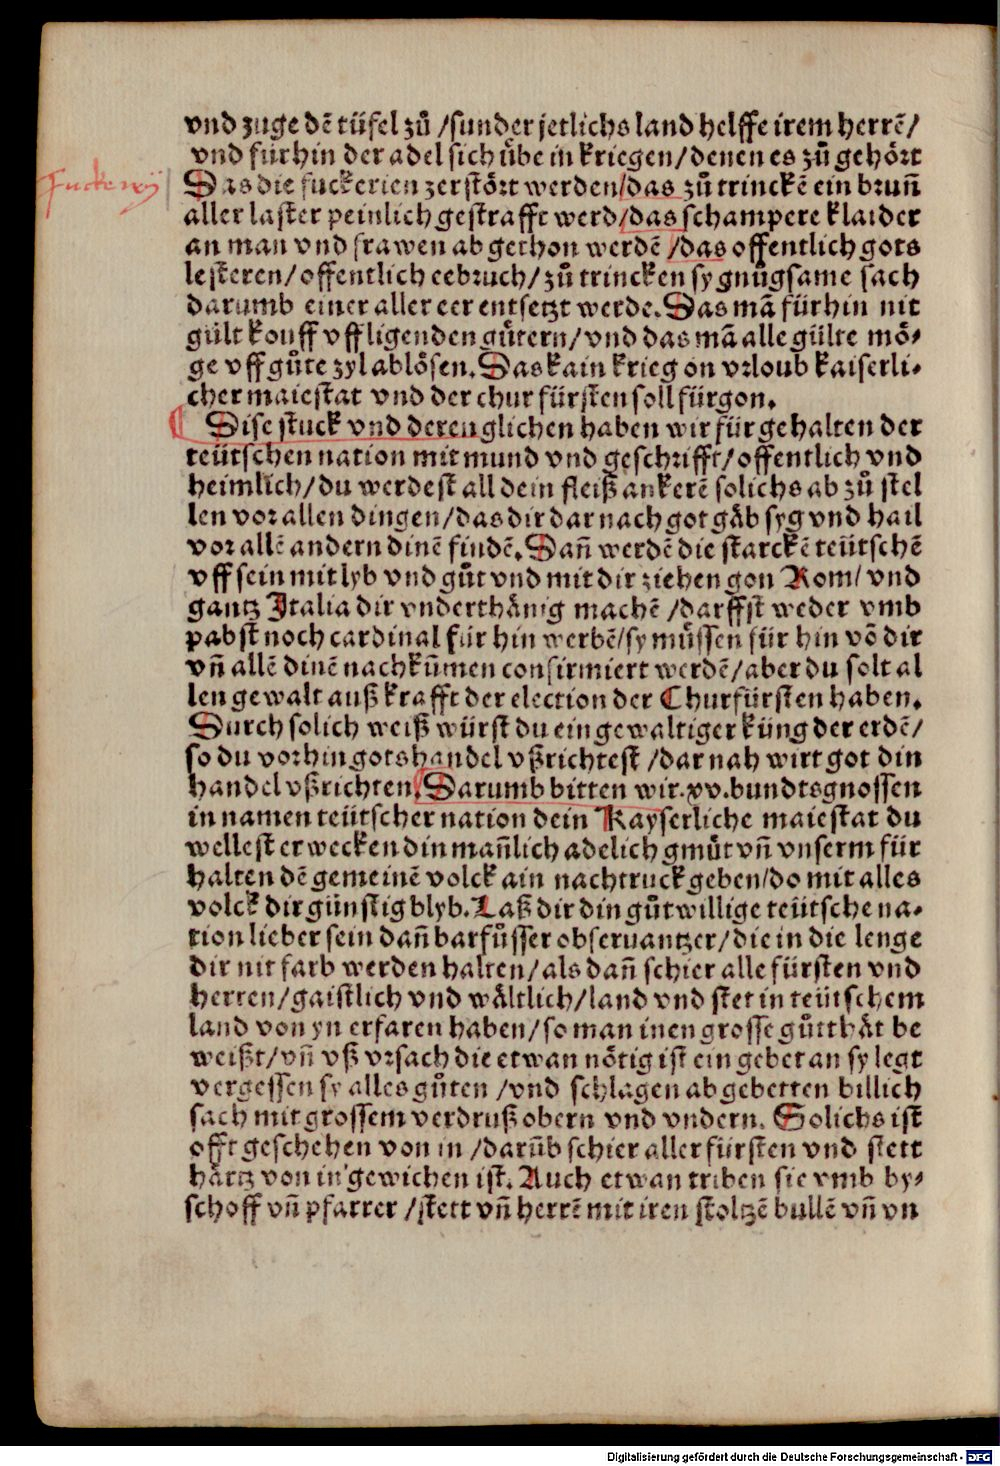 vnd zuge dē tüfel zů /sunder jetlichs land helffe irem herrē/
vnd fürhin der adel sich übe in kriegen/denen es zů gehört
Fuckerij
Das die fuckerien zerstört werden/das zů trinckē ein brun̄
aller laster peinlich gestrafft werd/das schampere klaider
an man vnd frawen ab gethon werdē /das offentlich gots
lesteren/offentlich eebruch/zů trincken sy gnůgsame sach
darumb einer aller eer entsetzt werde. Das mā fürhin nit
gült kouff vff ligenden gůtern/vnd das mā alle gülte mö⸗
ge vff gůte zyl ablösen. Das kain krieg on vrloub kaiserli⸗
cher maiestat vnd der churfürsten soll fürgon.
Dise stuck vnd deren glichen haben wir für gehalten der
teütschen nation mit mund vnd geschrifft/offentlich vnd
heimlich/du werdest all dein fleiß ankerē solichs ab zů stel
len vor allen dingen/das dir dar nach got gäb syg vnd hail
vor allē andern dinē findē. Dan̄ werdē die starckē teütschē
vff sein mit lyb vnd gůt vnd mit dir ziehen gon Rom/ vnd
gantz Italia dir vnderthänig machē /darffst weder vmb
pabst noch cardinal für hin werbē/sy müssen für hin vō dir
vn̄ allē dinē nachkūmen confirmiert werdē/aber du solt al
len gewalt auß krafft der election der Churfürsten haben.
Durch solich weiß würst du ein gewaltiger küng der erdē/
so du vorhin gots handel vßrichtest /dar nah wirt got din
handel vßrichten. Darumb bitten wir .xv. bundtsgnossen
in namen teütscher nation dein Kayserliche maiestat du
wellest erwecken din man̄lich adelich gmůt vn̄ vnserm für
halten dē gemeinē volck ain nachtruck geben/do mit alles
volck dir günstig blyb. Laß dir din gůtwillige teütsche na⸗
tion lieber sein dan̄ barfůsser obseruantzer/die in die lenge
dir nit farb werden halten/als dan̄ schier alle fürsten vnd
herren/gaistlich vnd wältlich/land vnd stet in teütschem
land von yn erfaren haben/so man inen grosse gůtthät be
weißt/vn̄ vß vrsach die etwan nötig ist ein gebet an sy legt
vergessen sy alles gůten /vnd schlagen ab gebetten billich
sach mit grossem verdruß obern vnd vndern. Solichs ist
offt geschehen von in /darūb schier aller fürsten vnd stett
hårtz von in gewichen ist. Auch etwan triben sie vmb by⸗
schoff vn̄ pfarrer /stett vn̄ herrē mit iren stoltzē bullē vn̄ vn
Digitalisierung gefördert durch die Deutsche Forschungsgemeinschaft - DFG